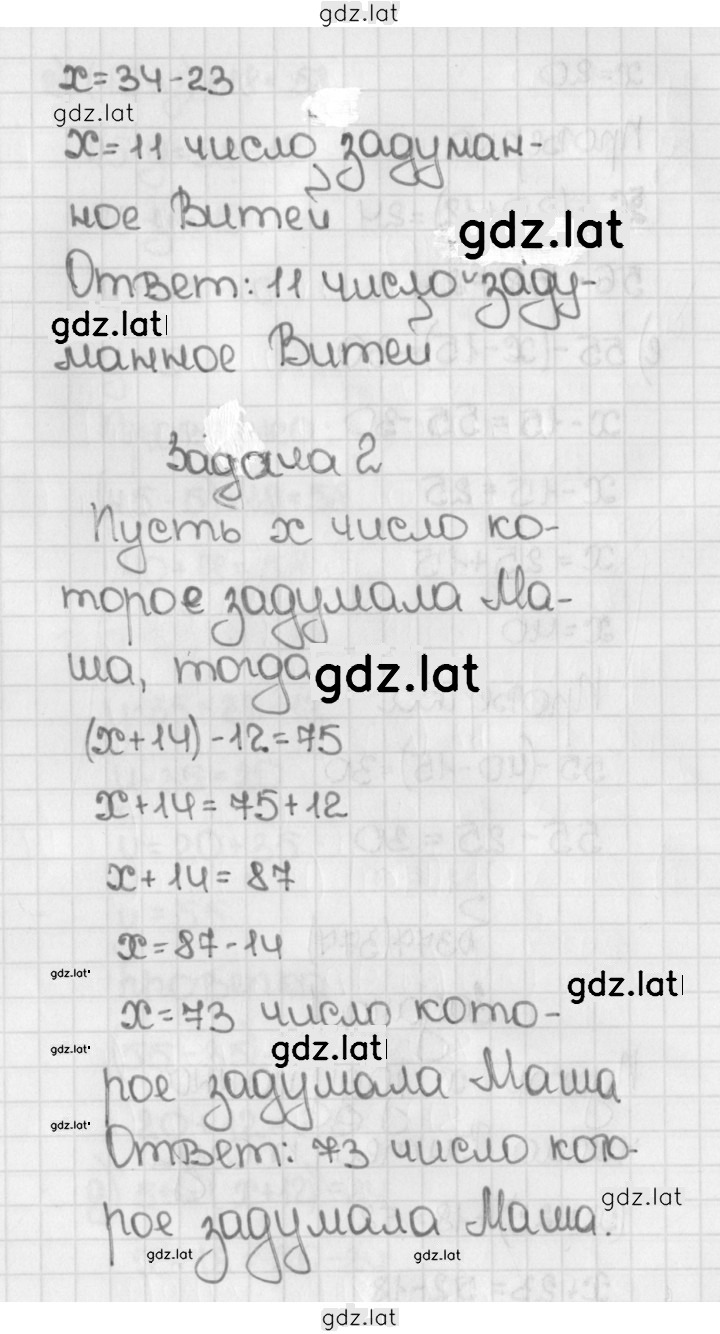 gdz.lat
x=34-23
gdz.lat
x=11 число задуман-
ное Витей
gdz.lat
Ответ: 11 число заду-
gdz.lat
манное Витей
Задача 2
Пусть x число ко-
торое задумала Ма-
ша, тогда
gdz.lat
(x+14)-12=75
x+14=75+12
x+14=87
x=87-14
gdz.lat
gdz.lat
x=73 число кото-
gdz.lat
gdz.lat
рое задумала Маша
gdz.lat
Ответ: 73 число кото-
gdz.lat
рое задумала Маша.
gdz.lat
gdz.lat
gdz.lat